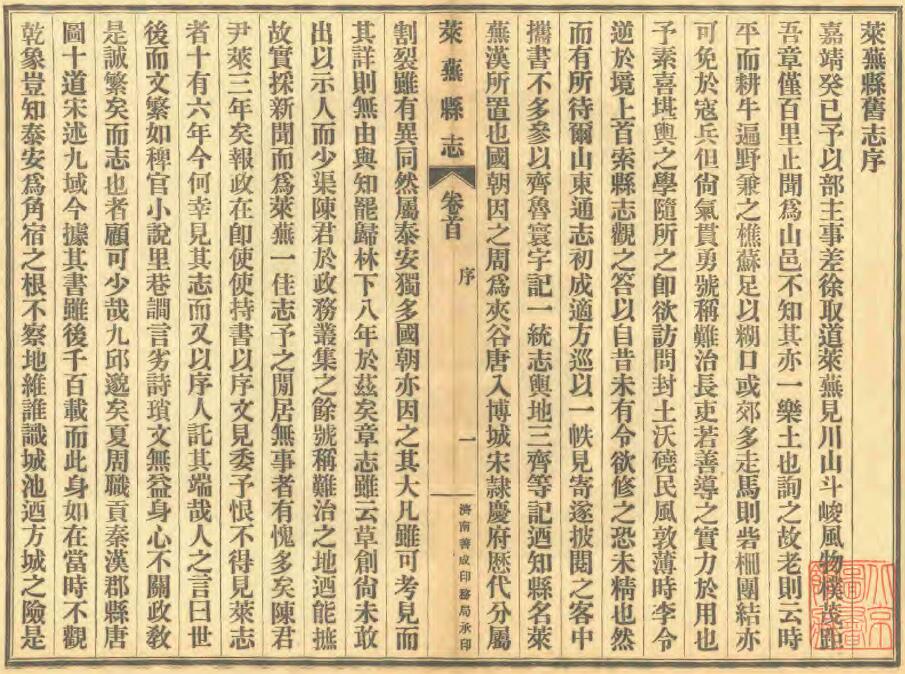 萊蕪縣舊志序
嘉靖癸巳予以部主事差徐取道萊蕪見川山斗峻風物樸茂距
吾章僅百里止聞爲山邑不知其亦一樂土也詢之故老則云時
平而耕牛遍野兼之樵蘇足以糊口或郊多走馬則砦柵團結亦
可免於寇兵但尙氣貫勇號稱難治長吏若善導之實力於用也
予素喜堪輿之學隨所之卽欲訪問封土沃磽民風敦薄時李令
逆於境上首索縣志觀之答以自昔未有令欲修之恐未精也然
而有所待爾山東通志初成適方巡以一帙見寄遂披閱之客中
攜書不多參以齊魯寰宇記一統志輿地三齊等記迺知縣名萊
蕪漢所置也國朝因之周爲夾谷唐入博城宋隷慶府歷代分屬
萊蕪縣志 卷首 序 一 濟南善成印務局承印
割裂雖有異同然屬泰安獨多國朝亦因之其大凡雖可考見而
其詳則無由與知罷歸林下八年於茲矣章志雖云草創尙未敢
出以示人而少渠陳君於政務叢集之餘號稱難治之地迺能摭
故實採新聞而爲萊蕪一佳志予之閒居無事者有愧多矣陳君
尹萊三年矣報政在卽使使持書以序文見委予恨不得見萊志
者十有六年今何幸見其志而又以序人託其端哉人之言曰世
後而文繁如稗官小說里巷讕言劣詩瑣文無益身心不關政敎
是誠繁矣而志也者顧可少哉九邱邈矣夏周職貢秦漢郡縣唐
圖十道宋述九域今據其書雖後千百載而此身如在當時不觀
乾象豈知泰安爲角宿之根不察地維誰識城池迺方城之險是